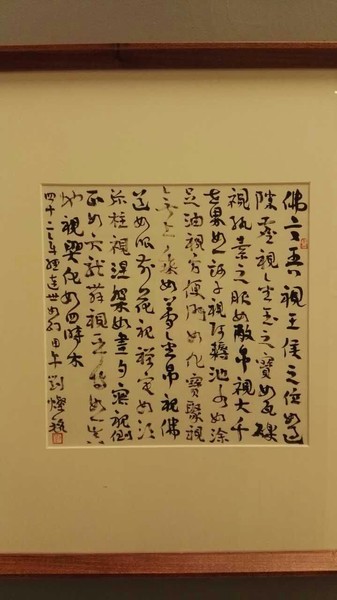 佛言吾視王侯之位如過
隙塵視金玉之寶如瓦礫
視紈素之服如敝帛視大千
世界如一訶子視阿耨池水如塗
足油視方便門如化寶聚視
無上乘如夢金帛視佛
道如眼前花視禪定如須
彌柱視涅槃如晝夕寤視倒
正如六龍舞視平等如一真
地視興化如四時木
四十二章經 世如幻甲午 劉燦銘